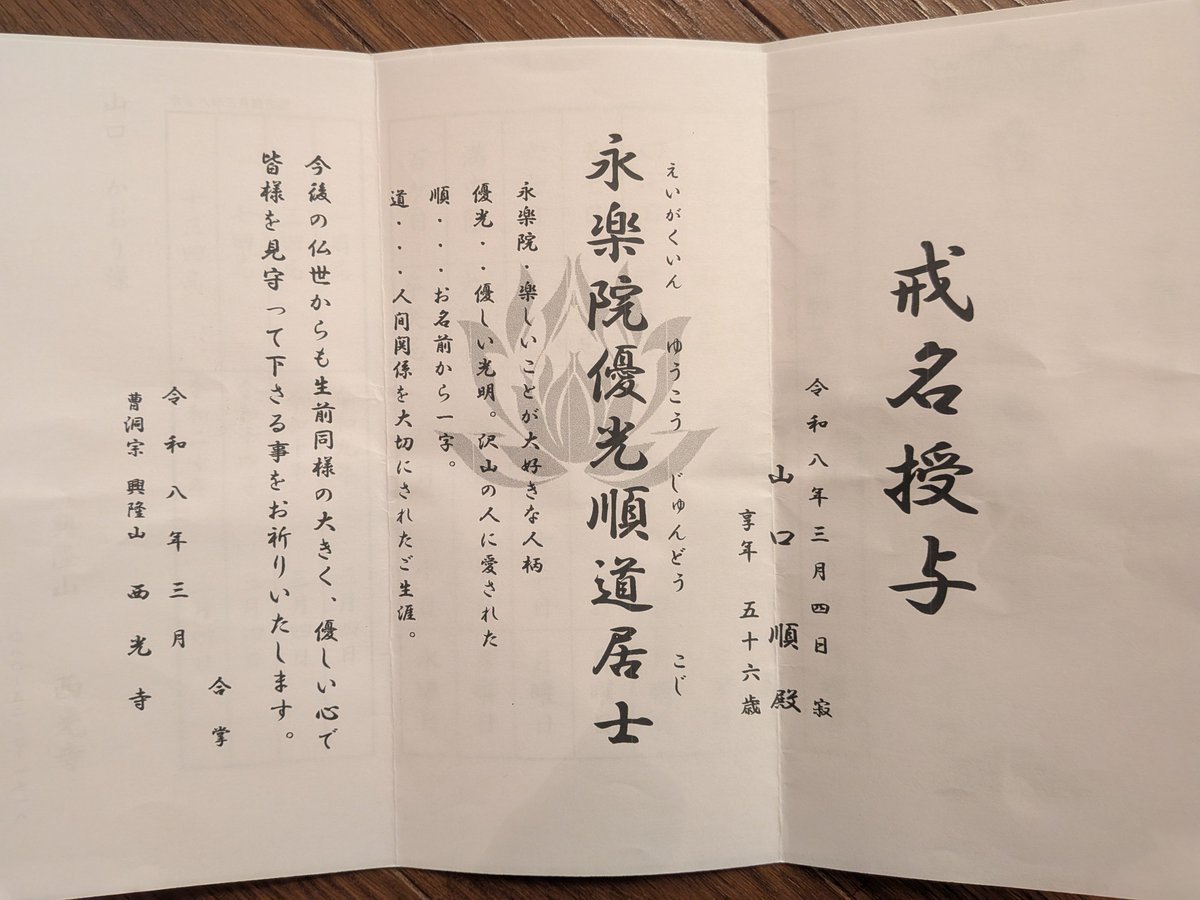 戒名授与
令和八年三月四日 寂
山口 順 殿
享年 五十六歳
えいがくいん ゆうこう じゅんどう こじ
永楽院優光順道居士
永楽院・楽しいことが大好きな人柄
優光・・優しい光明。沢山の人に愛された
順・・・お名前から一字。
道・・・人間関係を大切にされたご生涯。
今後の仏世からも生前同様の大きく、優しい心で
皆様を見守って下さる事をお祈りいたします。
合掌
令和八年三月
曹洞宗 興隆山 西光寺